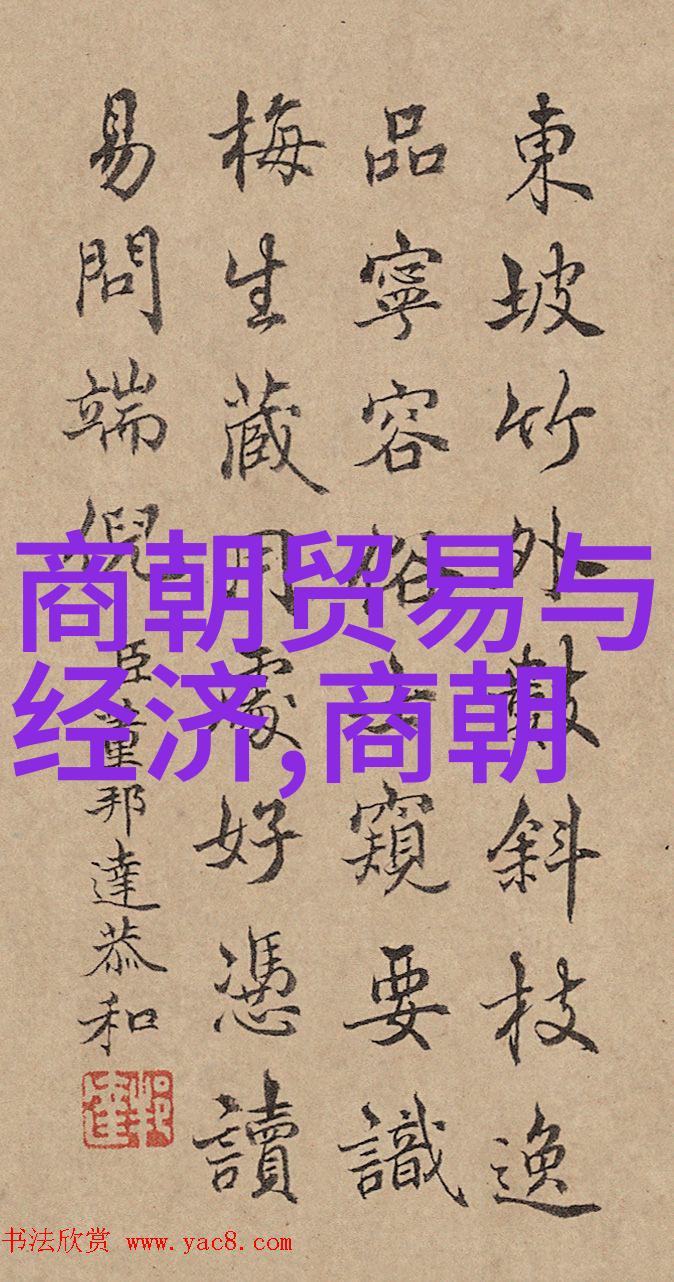 東坡竹外敧斜枝逸
品寧容俗窺要識
梅生藏用處好憑讀
易問端倪
臣董邦達恭和
商朝贸易与
经济,商朝
书法欣赏 www.yac8.com